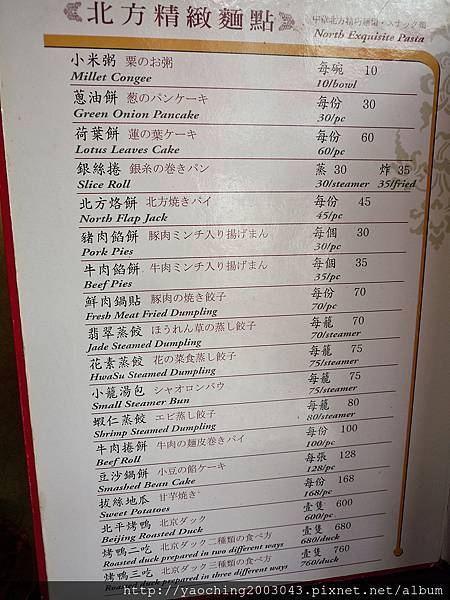 《北方精緻麵點》
North Exquisite Pasta
小米粥 粟のお粥 每碗 10
Millet Congee 10/bowl
蔥油餅 葱のパンケーキ 每份 30
Green Onion Pancake 30/pc
荷葉餅 蓮の葉ケーキ 每份 60
Lotus Leaves Cake 60/pc
銀絲捲 銀糸の巻きパン 蒸 30 炸 35
Slice Roll 30/steamer 35/fried
北方烙餅 北方焼きパイ 每份 45
North Flap Jack 45/pc
豬肉餡餅 豚肉ミンチ入り揚げまん 每個 30
Pork Pies 30/pc
牛肉餡餅 牛肉ミンチ入り揚げまん 每個 35
Beef Pies 35/pc
鮮肉鍋貼 豚肉の焼き餃子 每份 70
Fresh Meat Fried Dumpling 70/pc
翡翠蒸餃 ほうれん草の蒸し餃子 每籠 70
Jade Steamed Dumpling 70/steamer
花素蒸餃 花の菜食蒸し餃子 每籠 75
HwaSu Steamed Dumpling 75/steamer
小籠湯包 シャオロンパウ 每籠 75
Small Steamer Bun 75/steamer
蝦仁蒸餃 エビ蒸し餃子 每籠 80
Shrimp Steamed Dumpling 80/steamer
牛肉捲餅 牛肉の麺皮巻きパイ 每份 100
Beef Roll 100/pc
豆沙鍋餅 小豆の餡ケーキ 每張 128
Smashed Bean Cake 128/pc
拔絲地瓜 甘芋焼き 每份 168
Sweet Potatoes 168/pc
北平烤鴨 北京ダック 壹隻 600
Beijing Roasted Duck 600/pc
烤鴨二吃 北京ダック二種類の食べ方 壹隻 680
Roasted duck prepared in two different ways 680/duck
烤鴨三吃 北京ダック三種類の食べ方 壹隻 760
Roasted duck prepared in three different ways 760/duck
http://yaoching2003043.pixnet.net/album